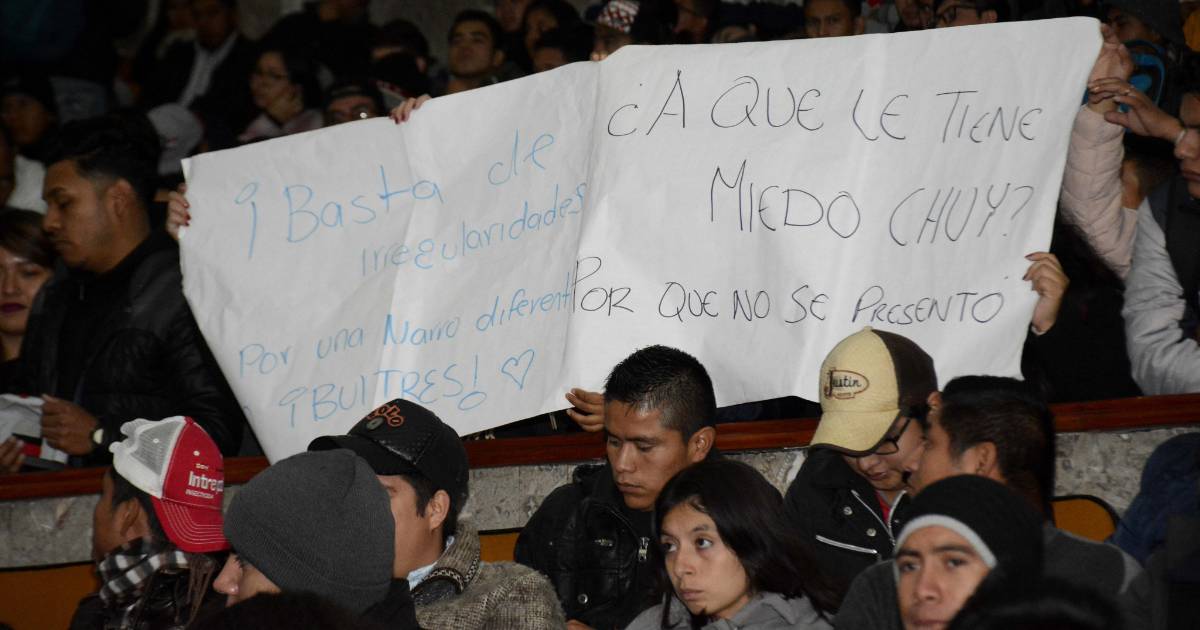 ¡Basta de
irregularidades
Por una Narro diferent
¡BUITRES! ♡
¿A QUE LE TIENE
MIEDO CHUY?
POR QUE NO SE PRESENTO
Justin
Intre
INSECTICIDA